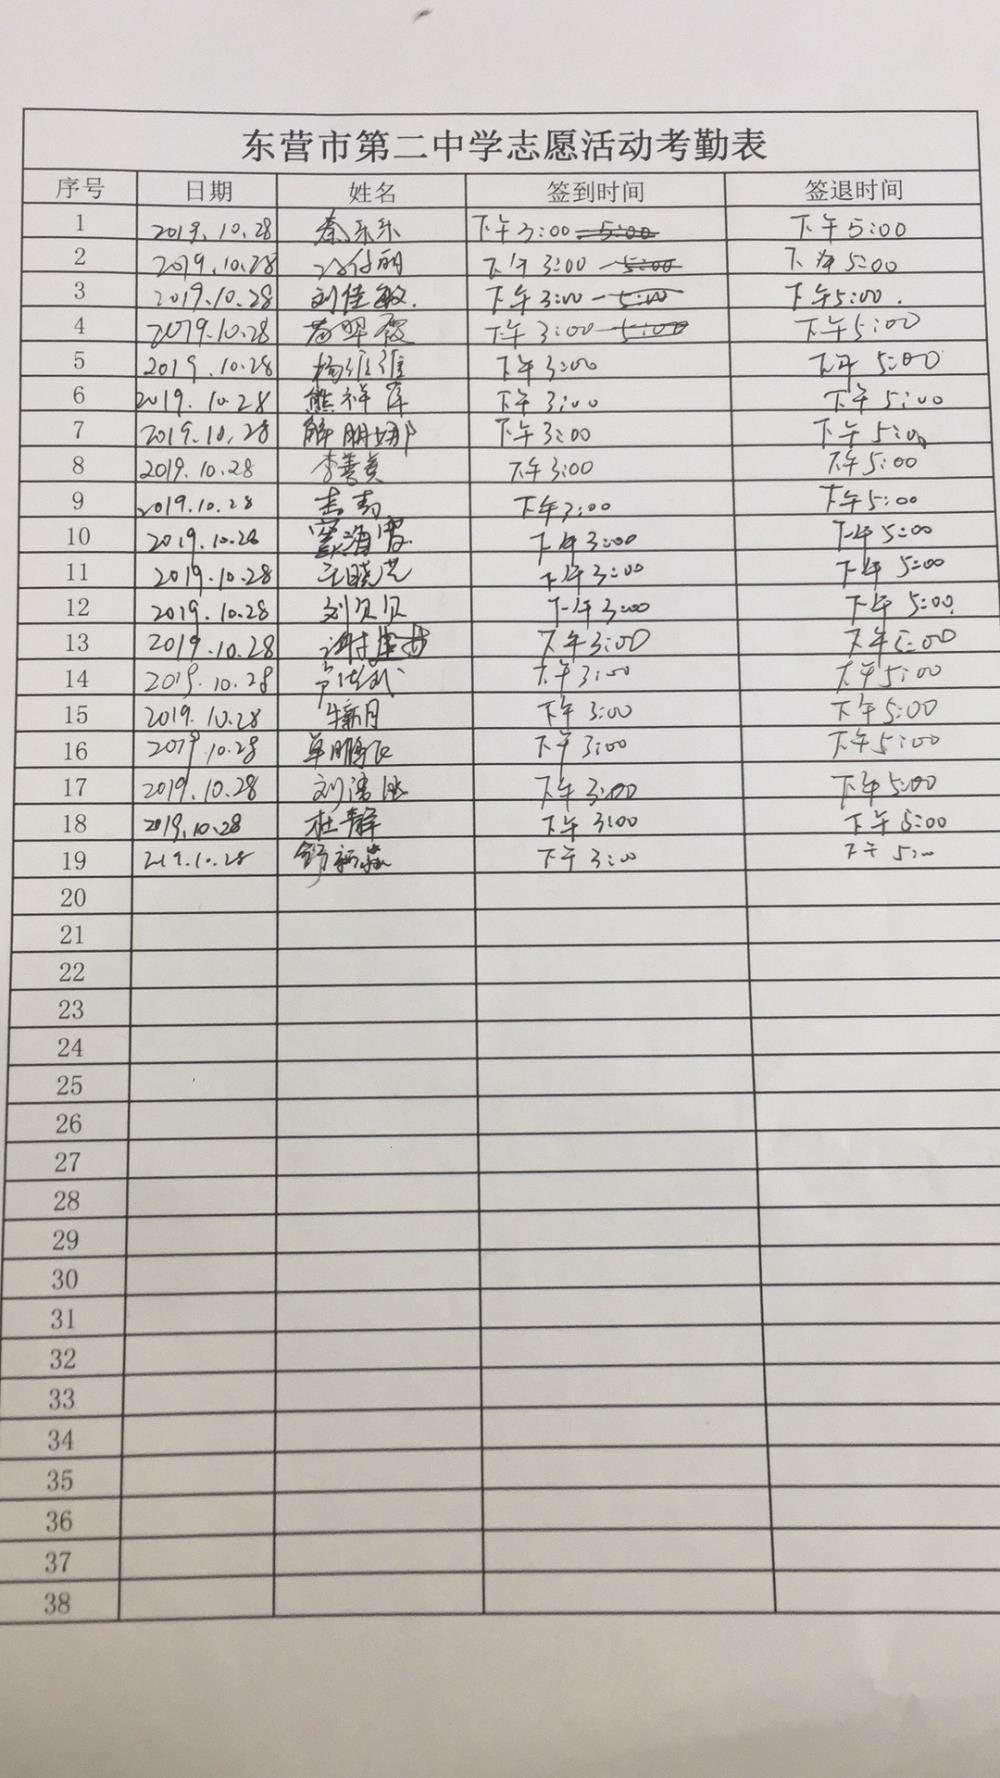 东营市第二中学志愿活动考勤表
序号 日期 姓名 签到时间 签退时间
1 2019.10.28 秦乐乐 下午3:00 5:00 下午5:00
2 2019.10.28 下午3:00 5:00 下午5:00
3 2019.10.28 刘佳敏. 下午3:00-5:00 下午5:00.
4 2019.10.28 下午3:00 5:00 下午5:00
5 2019.10.28 杨维维 下午3:00 下午5:00
6 2019.10.28 熊祥萍 下午3:00 下午5:00
7 2019.10.28 解明娜 下午3:00 下午5:00
8 2019.10.28 李善英 下午3:00 下午5:00
9 2019.10.28 下午3:00 下午5:00
10 2019.10.28 下午3:00 下午5:00
11 2019.10.28 王晓芸 下午3:00 下午5:00
12 2019.10.28 刘贝贝 下午3:00 下午5:00
13 2019.10.28 下午3:00 下午5:00
14 2019.10.28 下午3:00 下午5:00
15 2019.10.28 牛新月 下午3:00 下午5:00
16 2019.10.28 单鹏飞 下午3:00 下午5:00
17 2019.10.28 下午3:00 下午5:00
18 2019.10.28 杜静 下午3:00 下午5:00
19 2019.10.28 下午3:00 下午5:00
20
21
22
23
24
25
26
27
28
29
30
31
32
33
34
35
36
37
38